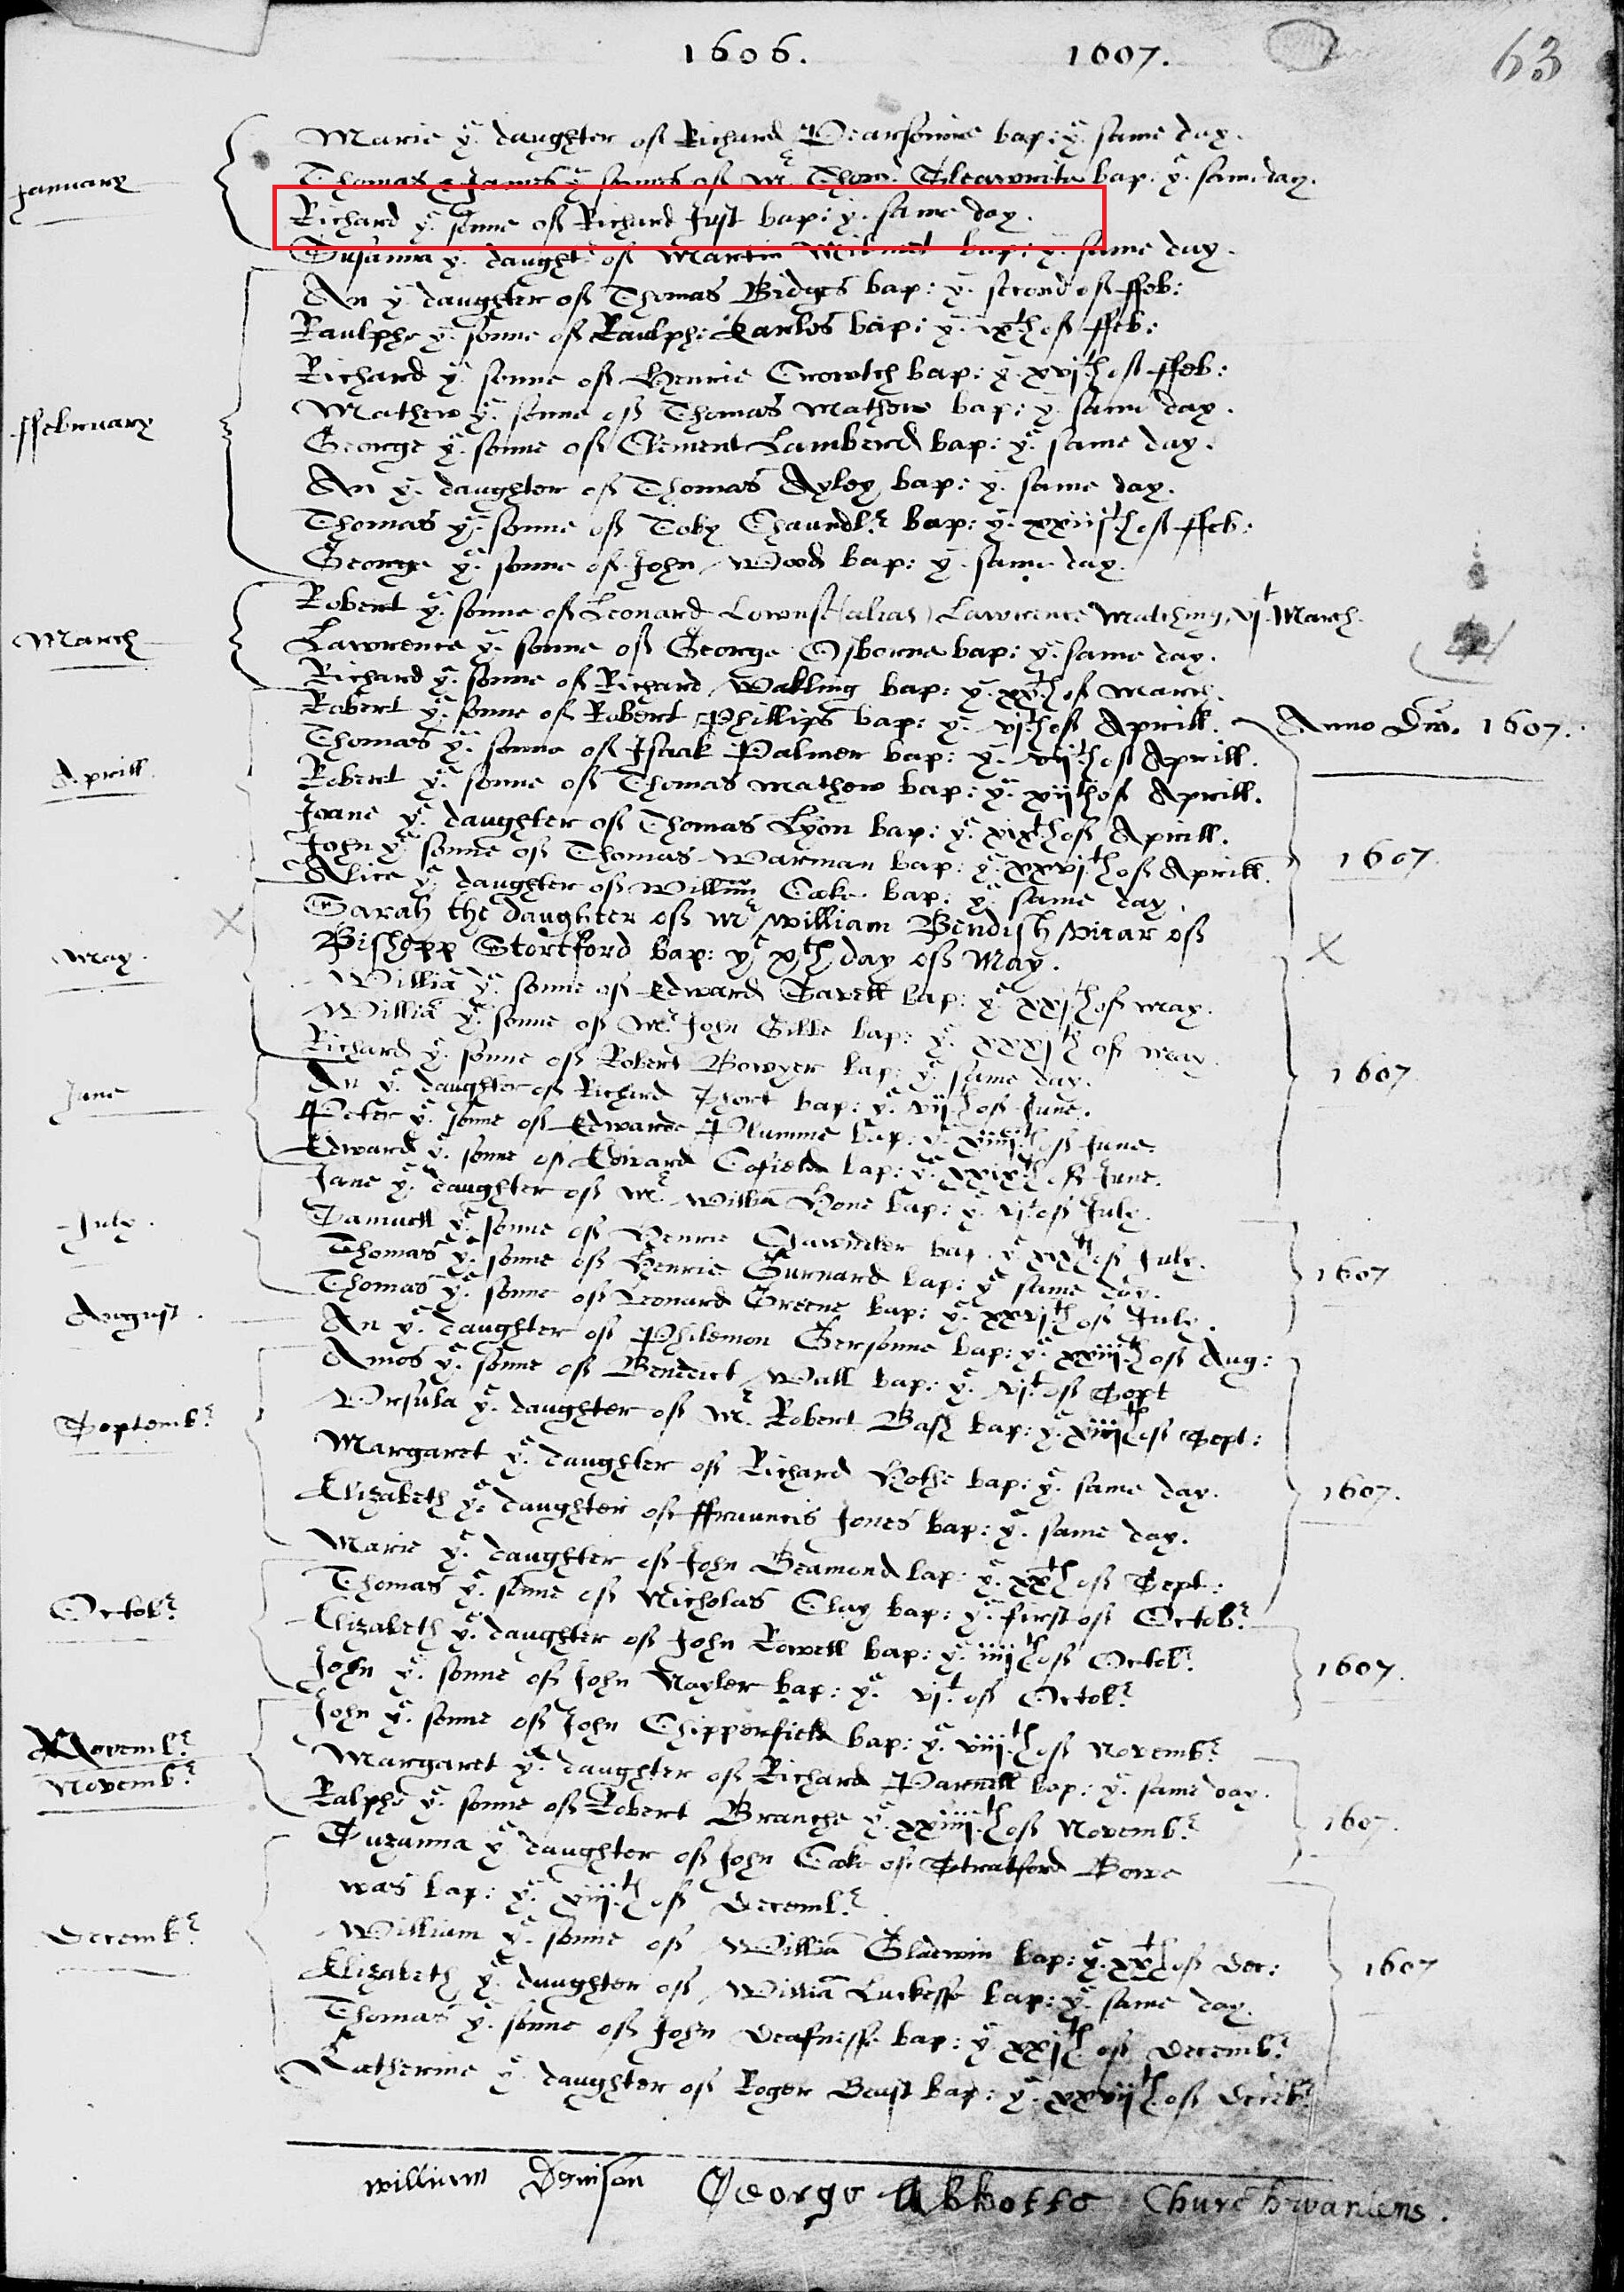 1606. 1607.
63
January
Marie yᵉ daughter of Richard Pearsonne bap: yᵉ same day.
Thomas & James yᵉ sonnes of Mʳ Thom. bap: yᵉ same day.
Richard yᵉ sonne of Richard Just bap: yᵉ same day.
Susanna yᵉ daughtʳ of Martin bap: yᵉ same day.
ffebruary
An yᵉ daughter of Thomas Bidges bap: yᵉ second of ffeb:
Raulphe yᵉ sonne of Raulphe Earlos bap: yᵉ ixth of ffeb:
Richard yᵉ sonne of Henrie Crowtch bap: yᵉ xvjth of ffeb:
Mathew yᵉ sonne of Thomas Mathew bap: yᵉ same day.
George yᵉ sonne of Clement Lamberd bap: yᵉ same day.
An yᵉ daughter of Thomas Ayley bap: yᵉ same day.
Thomas yᵉ sonne of Toby Chaundlʳ bap: yᵉ xxiijth of ffeb:
George yᵉ sonne of John Wood bap: yᵉ same day.
March
Robert yᵉ sonne of Leonard (alias) Lawrence Matching, vjt March.
Lawrence yᵉ sonne of George Osborne bap: yᵉ same day.
Richard yᵉ sonne of Richard Wakling bap: yᵉ of March.
Aprill
Robert yᵉ sonne of Robert Phillips bap: yᵉ vjth of Aprill. Anno Dni. 1607.
Thomas yᵉ sonne of Isaak Palmer bap: yᵉ vijth of Aprill.
Robert yᵉ sonne of Thomas Mathew bap: yᵉ xijth of Aprill.
Joane yᵉ daughter of Thomas Lyon bap: yᵉ xixth of Aprill.
John yᵉ sonne of Thomas Warman bap: yᵉ xxvjth of Aprill. 1607
Alice yᵉ daughter of Willim Cooke bap: yᵉ same day.
May.
Sarah the daughter of Mʳ William Bendish vicar of
Bishopp Stortford bap: yᵉ xth day of May.
Williā yᵉ sonne of Edward Savell bap: yᵉ xxjth of May.
Williā yᵉ sonne of Mʳ John Gibbe bap: yᵉ xxxjth of May.
Richard yᵉ sonne of Robert Bowyer bap: yᵉ same day.
June
An yᵉ daughter of Richard Short bap: yᵉ vijth of June. 1607
Peter yᵉ sonne of Edwarde Plumme bap: yᵉ xiiijth of June.
Edward yᵉ sonne of Edward Cofield bap: yᵉ xxixth of June.
July.
Jane yᵉ daughter of Mʳ Williā Hone bap: yᵉ vjt of July.
Samuell yᵉ sonne of Henrie bap. yᵉ of July.
Thomas yᵉ sonne of Henrie Gurnard bap: yᵉ same day. 1607
Thomas yᵉ sonne of Leonard Greene bap: yᵉ xxvjth of July.
August.
An yᵉ daughter of Philemon Gersonne bap: yᵉ xxiijth of Aug:
Septembʳ
Amos yᵉ sonne of Benedict Wall bap: yᵉ vjt of Sept
Vrsula yᵉ daughter of Mʳ Robert Bash bap: yᵉ xiijth of Sept:
Margaret yᵉ daughter of Richard Hothe bap: yᵉ same day.
Elizabeth yᵉ daughter of ffrauncis Jones bap: yᵉ same day. 1607.
Marie yᵉ daughter of John Beamond bap: yᵉ xxth of Sept:
Octobʳ
Thomas yᵉ sonne of Nicholas Clay bap: yᵉ first of Octobʳ
Elizabeth yᵉ daughter of John Rowell bap: yᵉ iiijth of Octobʳ
John yᵉ sonne of John Nayler bap: yᵉ vjt of Octobʳ 1607.
Novembʳ
Novembʳ
John yᵉ sonne of John Chipperfield bap: yᵉ viijth of Novembʳ
Margaret yᵉ daughter of Richard Parnell bap: yᵉ same day.
Ralphe yᵉ sonne of Robert Branche yᵉ xxiiijth of Novembʳ 1607.
Decembʳ
Suzanna yᵉ daughter of John Cooke of Stratford Bowe
was bap: yᵉ xiijth of Decembʳ.
William yᵉ sonne of Williā Gladwin bap: yᵉ xxth of Dec: 1607
Elizabeth yᵉ daughter of Williā bap: yᵉ same day.
Thomas yᵉ sonne of John bap: yᵉ xxjth of Decembʳ
Katherine yᵉ daughter of Roger Beust bap: yᵉ xxvijth of Decēbʳ
William Denison George Abbotte Churchwardens.